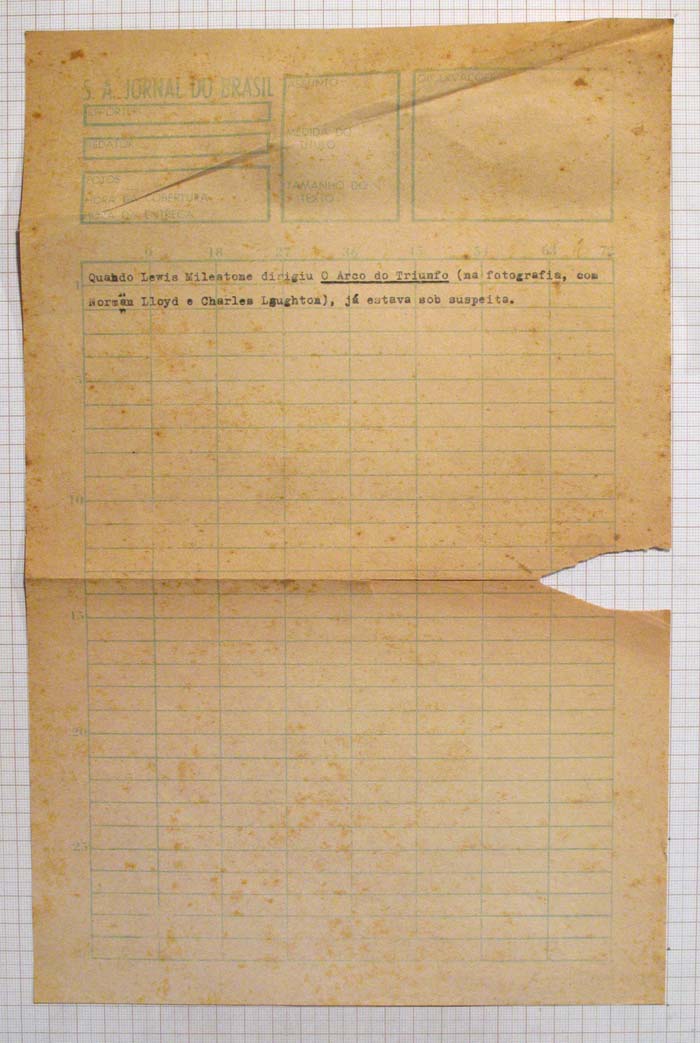 S. A. JORNAL DO BRASIL
REPÓRTER
REDATOR
FOTOS
HORA DA COBERTURA
HORA DA ENTREGA
ASSUNTO
MEDIDA DO
TÍTULO
TAMANHO DO
TEXTO
9 18 27 36 45 54 63 72
1 Quando Lewis Milestone dirigiu O Arco do Triunfo (na fotografia, com
Norman Lloyd e Charles Laughton), já estava sob suspeita.
5
10
15
20
25